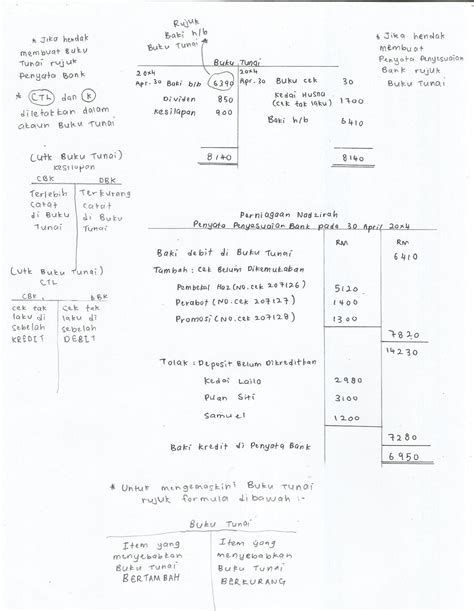 * Jika hendak
membuat Buku
Tunai rujuk
Penyata Bank
* CTL dan K
diletakkan dalam
akaun Buku Tunai
Rujuk
Baki h/b
Buku Tunai
* Jika hendak
membuat
Penyata Penyesuaian
Bank rujuk
Buku Tunai
Buku Tunai
20x4 20x4
Apr. 30 Baki b/b 6390 Apr. 20 Buku cek 30
Dividen 850 Kedai Husna
(cek tak laku) 1700
Kesilapan 900
Baki h/b 6410
8140 8140
(utk Buku Tunai)
Kesilapan
CBK DBK
Terlebih Terkurang
catat catat
di Buku di Buku
Tunai Tunai
(utk Buku Tunai)
CTL
CBK DBK
cek tak cek tak
laku di laku di
sebelah sebelah
KREDIT DEBIT
Perniagaan Nadzirah
Penyata Penyesuaian Bank pada 30 April 20x4
RM RM
Baki debit di Buku Tunai 6410
Tambah : Cek Belum Dikemukakan
(No. cek 207126) 5120
Perabot (No. cek 207127) 1400
Promosi (No. cek 207128) 1300
7820
14230
Tolak : Deposit Belum Dikreditkan
Kedai Laila 2980
Puan Siti 3100
Samuel 1200
7280
Baki kredit di Penyata Bank 6950
* Untuk mengemaskini Buku Tunai
rujuk formula dibawah :-
Buku Tunai
Item yang Item yang
menyebabkan menyebabkan
Buku Tunai Buku Tunai
BERTAMBAH BERKURANG